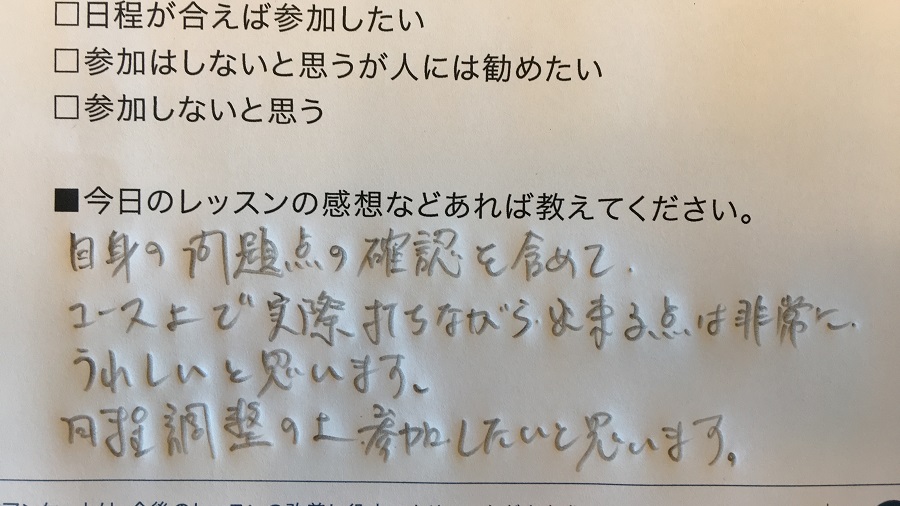 □日程が合えば参加したい
□参加はしないと思うが人には勧めたい
□参加しないと思う
■今日のレッスンの感想などあれば教えてください。
自身の問題点の確認を含めて、
コース上で実際打ちながら出来る点は非常に
うれしいと思います。
日程調整の上参加したいと思います。